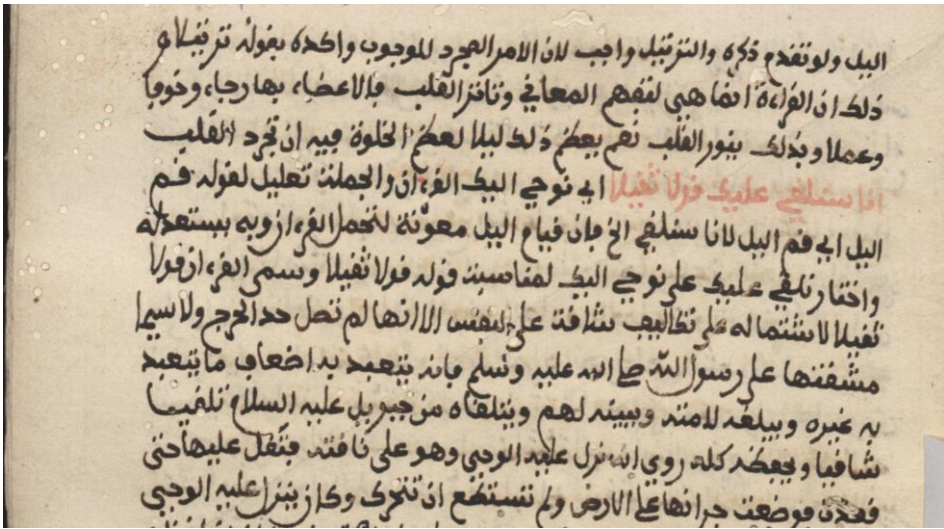 اليل ولو تقدم ذكره والترتيل واجب لان الامر المجرد للوجوب واكده بقوله ترتيلا و
ذلك ان القراءة انما هي لتفهم المعاني وتاثر القلب فالاعضاء بها رجاء وخوفا
وعملا وبذلك ينور القلب نعم يعظم ذلك ليلا لعظم الخلوة فيه ان تجرد القلب
انا سنلقي عليك قولا ثقيلا اي نوحي اليك القرءان والجملة تعليل لقوله قم
اليل اي قم اليل لانا سنلقي الخ فان قيام اليل معونة لتحمل القرءان وبه يستعد له
واختار نلقي عليك على نوحي اليك لمناسبة قوله قولا ثقيلا وسمى القرءان قولا
ثقيلا لاشتماله على تكاليف شاقة على النفس الا انها لم تصل حد الحرج ولا سيما
مشقتها على رسول الله صلى الله عليه وسلم فانه يتعبد به اضعاف ما يتعبد
به غيره ويبلغه لامته ويبينه لهم ويتلقاه من جبريل عليه السلام تلقيا
شافيا ويحفظه كله روي انه نزل عليه الوحي وهو على ناقته فثقل عليها حتى
فوضعت جرانها على الارض ولم تستطع ان تتحرك وكان ينزل عليه الوحي